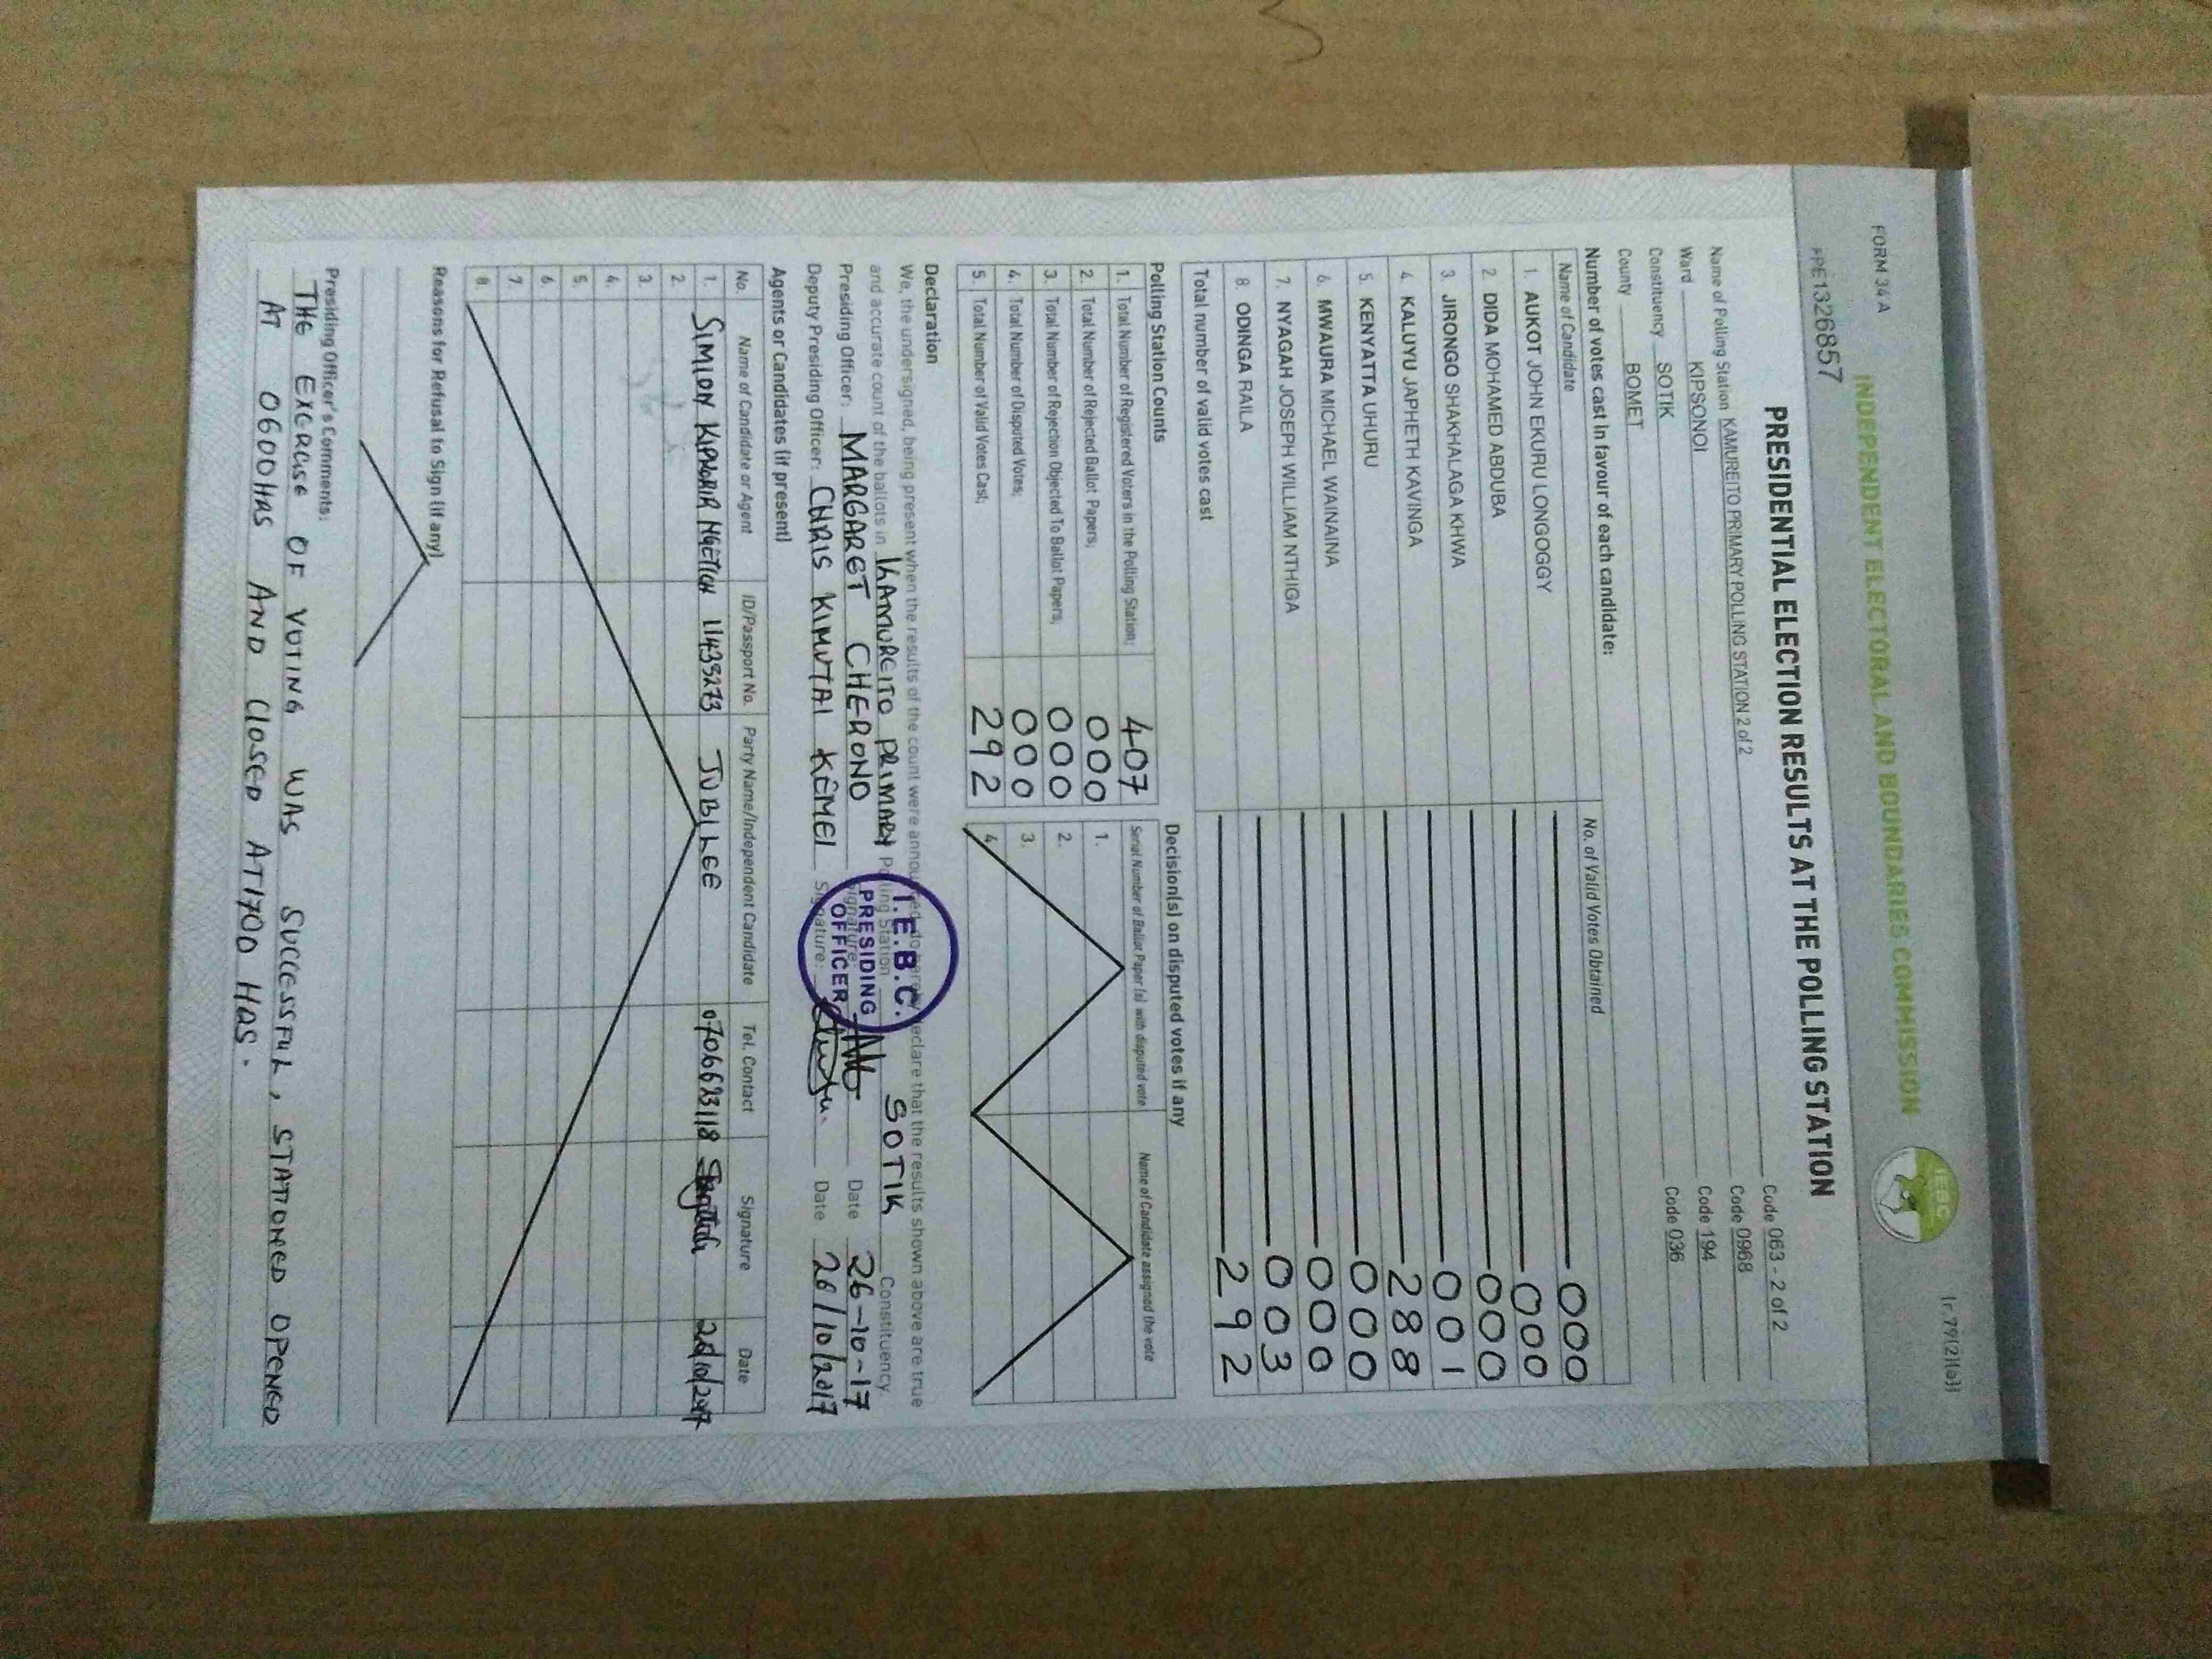 FORM 34 A
(r.79(2)(a))
INDEPENDENT ELECTORAL AND BOUNDARIES COMMISSION
IEBC
PPE1326857
PRESIDENTIAL ELECTION RESULTS AT THE POLLING STATION
Name of Polling Station KAMUREITO PRIMARY POLLING STATION 2 of 2 Code 063 - 2 of 2
Ward KIPSONOI Code 0968
Constituency SOTIK Code 194
County BOMET Code 036
Number of votes cast in favour of each candidate:
Name of Candidate No. of Valid Votes Obtained
1. AUKOT JOHN EKURU LONGOGGY 000
2. DIDA MOHAMED ABDUBA 000
3. JIRONGO SHAKHALAGA KHWA 000
4. KALUYU JAPHETH KAVINGA 001
5. KENYATTA UHURU 288
6. MWAURA MICHAEL WAINAINA 000
7. NYAGAH JOSEPH WILLIAM NTHIGA 000
8. ODINGA RAILA 003
Total number of valid votes cast 292
Polling Station Counts
1. Total Number of Registered Voters in the Polling Station; 407
2. Total Number of Rejected Ballot Papers; 000
3. Total Number of Rejection Objected To Ballot Papers; 000
4. Total Number of Disputed Votes; 000
5. Total Number of Valid Votes Cast; 292
Decision(s) on disputed votes if any
Serial Number of Ballot Paper (s) with disputed vote Name of Candidate assigned the vote
1.
2.
3.
4.
Declaration
We, the undersigned, being present when the results of the count were announced, do hereby declare that the results shown above are true
and accurate count of the ballots in KAMUREITO PRIMARY Polling Station SOTIK Constituency.
Presiding Officer: MARGARET CHERONO Signature: Date 26-10-17
Deputy Presiding Officer: CHRIS KIMUTAI KEMEI Signature: Date 26/10/2017
I.E.B.C.
PRESIDING
OFFICER
Agents or Candidates (if present)
No. Name of Candidate or Agent ID/Passport No. Party Name/Independent Candidate Tel. Contact Signature Date
1. SIMION KIPKORIR NGETICH 11433273 JUBILEE 0706623118 26/10/2017
2.
3.
4.
5.
6.
7.
8.
Reasons for Refusal to Sign (if any)
Presiding Officer's Comments:
THE EXERCISE OF VOTING WAS SUCCESSFUL, STATIONED OPENED
AT 0600HRS AND CLOSED AT 1700 HRS.